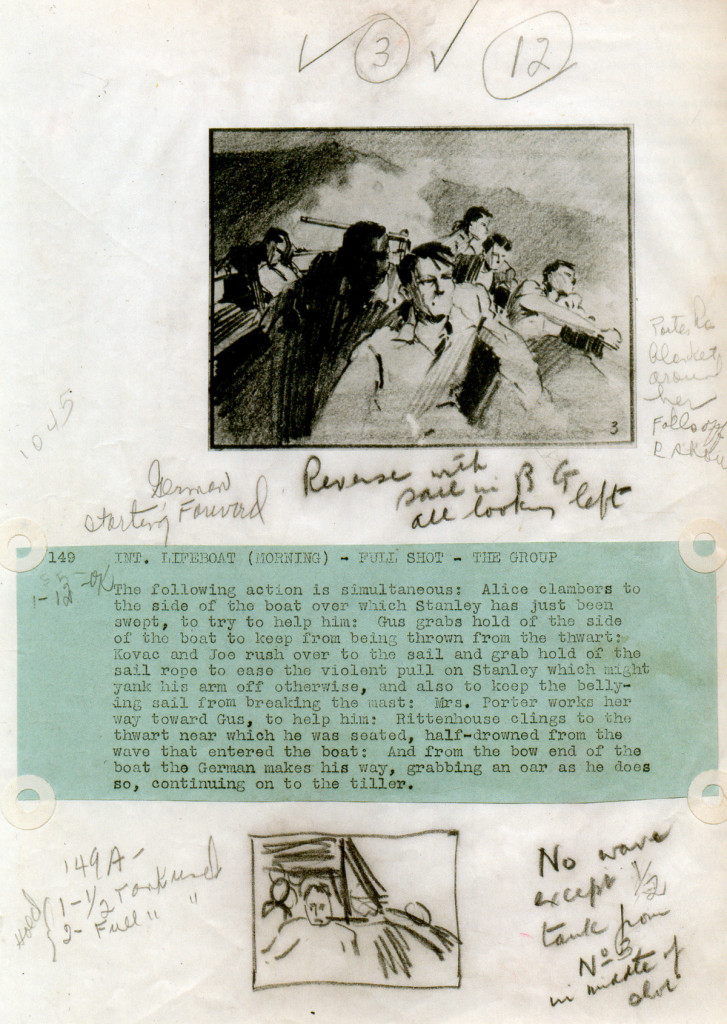 ✓ 3 ✓ 12
3
blanket
around
her
Falls off
1045
German
starting Forward
Reverse with
sail in B G
all looking left
149 INT. LIFEBOAT (MORNING) - FULL SHOT - THE GROUP
1-12 - OK
The following action is simultaneous: Alice clambers to
the side of the boat over which Stanley has just been
swept, to try to help him: Gus grabs hold of the side
of the boat to keep from being thrown from the thwart:
Kovac and Joe rush over to the sail and grab hold of the
sail rope to ease the violent pull on Stanley which might
yank his arm off otherwise, and also to keep the belly-
ing sail from breaking the mast: Mrs. Porter works her
way toward Gus, to help him: Rittenhouse clings to the
thwart near which he was seated, half-drowned from the
wave that entered the boat: And from the bow end of the
boat the German makes his way, grabbing an oar as he does
so, continuing on to the tiller.
149A-
1-1/2 Tank
2- Full " "
No wave
except 1/2
tank from
No 3
in middle of
shot